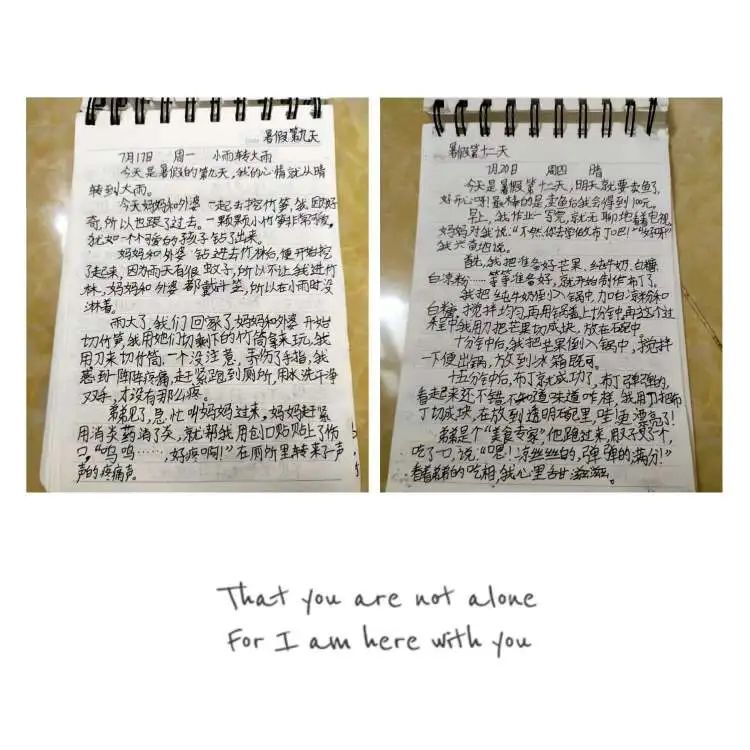 暑假第九天
7月17日 周一 小雨转大雨
今天是暑假的第九天,我的心情就从晴
转到大雨。
今天妈妈和外婆一起去挖竹笋,我因好
奇,所以也跟了过去。一颗颗小竹笋非常可爱,
犹如一个个可爱的孩子钻了出来。
妈妈和外婆钻进去竹林后,便开始挖
了起来,因为雨天有很蚊子,所以不让我进竹
林,妈妈和外婆都戴斗笠,所以在小雨时没
淋着。
雨大了,我们回家了,妈妈和外婆开始
切竹笋,我用她们切剩下的竹筒拿来玩,我
用刀来切竹筒,一个没注意,弄伤了手指,我
感到一阵阵疼痛,赶紧跑到厕所,用水洗干净
双手,才没有那么疼。
弟弟见了,急忙叫妈妈过来,妈妈赶紧
用消炎药消了炎,就帮我用创口贴贴上了伤
口,“呜呜……,好疼啊!”在厕所里转来了一声
声的疼痛声。
暑假第十二天
7月20日 周四 晴
今天是暑假第十二天,明天就要卖鱼了,
好开心呀!最棒的是卖鱼后我会得到100元。
早上,我作业一写完,就无聊地看电视,
妈妈对我说:“不然你去学做布丁吧!”“好呀”
我兴奋地说。
首先,我把准备好芒果、纯牛奶、白糖、
白凉粉……等等准备好,就开始制作布丁了。
我把纯牛奶倒入锅中,加白凉粉和
白糖,搅拌均匀,再用锅煮上十分钟,再这个过
程中我用刀把芒果切成块,放在碗中。
十分钟后,我把芒果倒入锅中,搅拌
一下便出锅,放到冰箱既可。
十五分钟后,布丁就成功了,布丁弹弹的,
看起来还不错,不知道味道咋样,我用刀把布
丁切成块,在放到透明碗里,哇!更漂亮了!
弟弟是个“美食专家”,他跑过来,取了叉子,
吃了一口,说:“嗯!凉丝丝的,弹弹的,满分!”
看着弟弟的吃相,我心里甜滋滋。
That you are not alone
For I am here with you